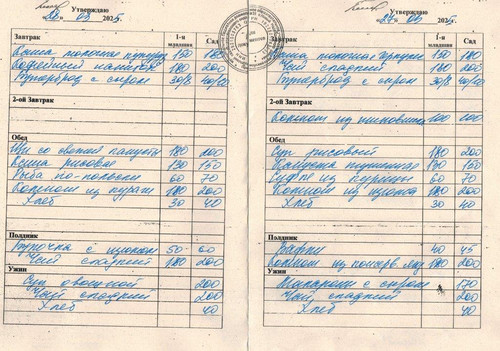 Утверждаю
03 2025
Завтрак
1-я младшая
Сад
Каша молочная 150 180
Кофейный напиток 180 200
Бутерброд с сыром 30/8 40/10
2-ой Завтрак
Обед
Щи со свежей капусты 180 200
Каша рисовая 130 150
Рыба по-польски 60 70
Компот из кураги 180 200
Хлеб 30 40
Полдник
Булочка с изюмом 50 60
Чай сладкий 180 200
Ужин
Суп овощной 200
Чай сладкий 200
Хлеб 40
Утверждаю
03 2025
Завтрак
1-я младшая
Сад
Каша молочная 150 180
Чай сладкий 180 200
Бутерброд с сыром 30/8 40/10
2-ой Завтрак
Компот из 100 100
Обед
Суп рисовый 180 200
Капуста тушеная 130 150
Суфле из курицы 60 70
Компот из изюма 180 200
Хлеб 30 40
Полдник
Вафли 40 45
Компот из консерв. 180 200
Ужин
Макароны с сыром 170
Чай сладкий 200
Хлеб 40